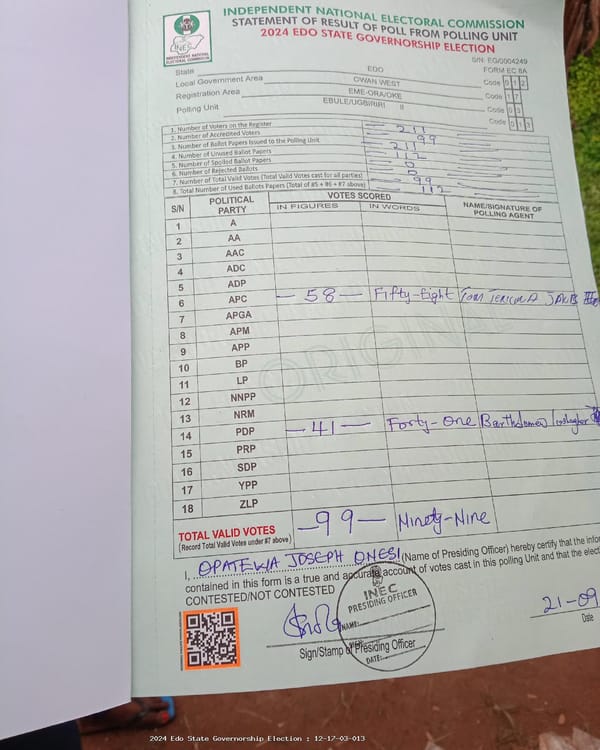 INDEPENDENT NATIONAL ELECTORAL COMMISSION
STATEMENT OF RESULT OF POLL FROM POLLING UNIT
2024 EDO STATE GOVERNORSHIP ELECTION
INEC
INDEPENDENT NATIONAL ELECTORAL COMMISSION
S/N: EG/0004249
FORM EC 8A
State EDO Code 0 1 2
Local Government Area OWAN WEST Code 1 7
Registration Area EME-ORA/OKE Code 0 3
Polling Unit EBULE/UGBIRIRI II Code 0 1 3
1. Number of Voters on the Register 211
2. Number of Accredited Voters 99
3. Number of Ballot Papers Issued to the Polling Unit 211
4. Number of Unused Ballot Papers 112
5. Number of Spoiled Ballot Papers 0
6. Number of Rejected Ballots 0
7. Number of Total Valid Votes (Total Valid Votes cast for all parties) 99
8. Total Number of Used Ballots Papers (Total of #5 + #6 + #7 above) 112
S/N POLITICAL PARTY VOTES SCORED NAME/SIGNATURE OF POLLING AGENT
IN FIGURES IN WORDS
1 A
2 AA
3 AAC
4 ADC
5 ADP
6 APC - 58 - Fifty-Eight
7 APGA
8 APM
9 APP
10 BP
11 LP
12 NNPP
13 NRM
14 PDP - 41 - Forty-One Bartholomew
15 PRP
16 SDP
17 YPP
18 ZLP
ORIGINAL
TOTAL VALID VOTES - 99 - Ninety-Nine
(Record Total Valid Votes under #7 above)
I, OPATEWA JOSEPH ONESI (Name of Presiding Officer) hereby certify that the infor
contained in this form is a true and accurate account of votes cast in this polling Unit and that the elect
CONTESTED/NOT CONTESTED
INEC
PRESIDING OFFICER
NAME:
DATE:
21-09
Sign/Stamp of Presiding Officer
Date
2024 Edo State Governorship Election : 12-17-03-013